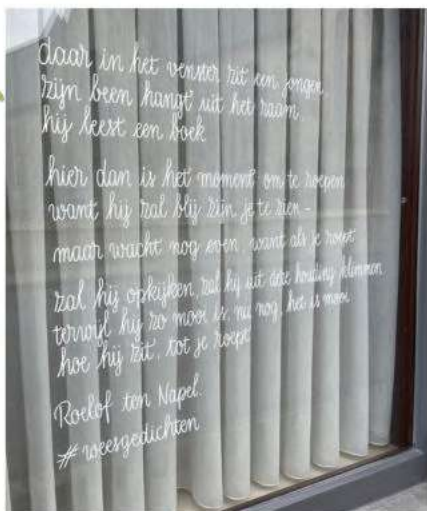 daar in het venster zit een jongen,
zijn been hangt uit het raam,
hij leest een boek
hier dan is het moment om te roepen
want hij zal blij zijn je te zien –
maar wacht nog even, want als je roept
zal hij opkijken, zal hij uit deze houding klimmen
terwijl hij zo mooi is, nu nog, het is mooi
hoe hij zit, tot je roept
Roelof ten Napel.
# raamgedichten